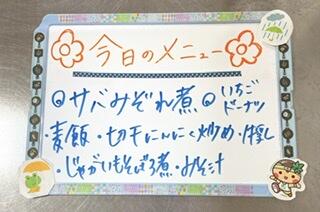 今日のメニュー
◎サバみぞれ煮 ◎いちごドーナツ
・麦飯・切干にんにく炒め・
・じゃがいもそぼろ煮・みそ汁